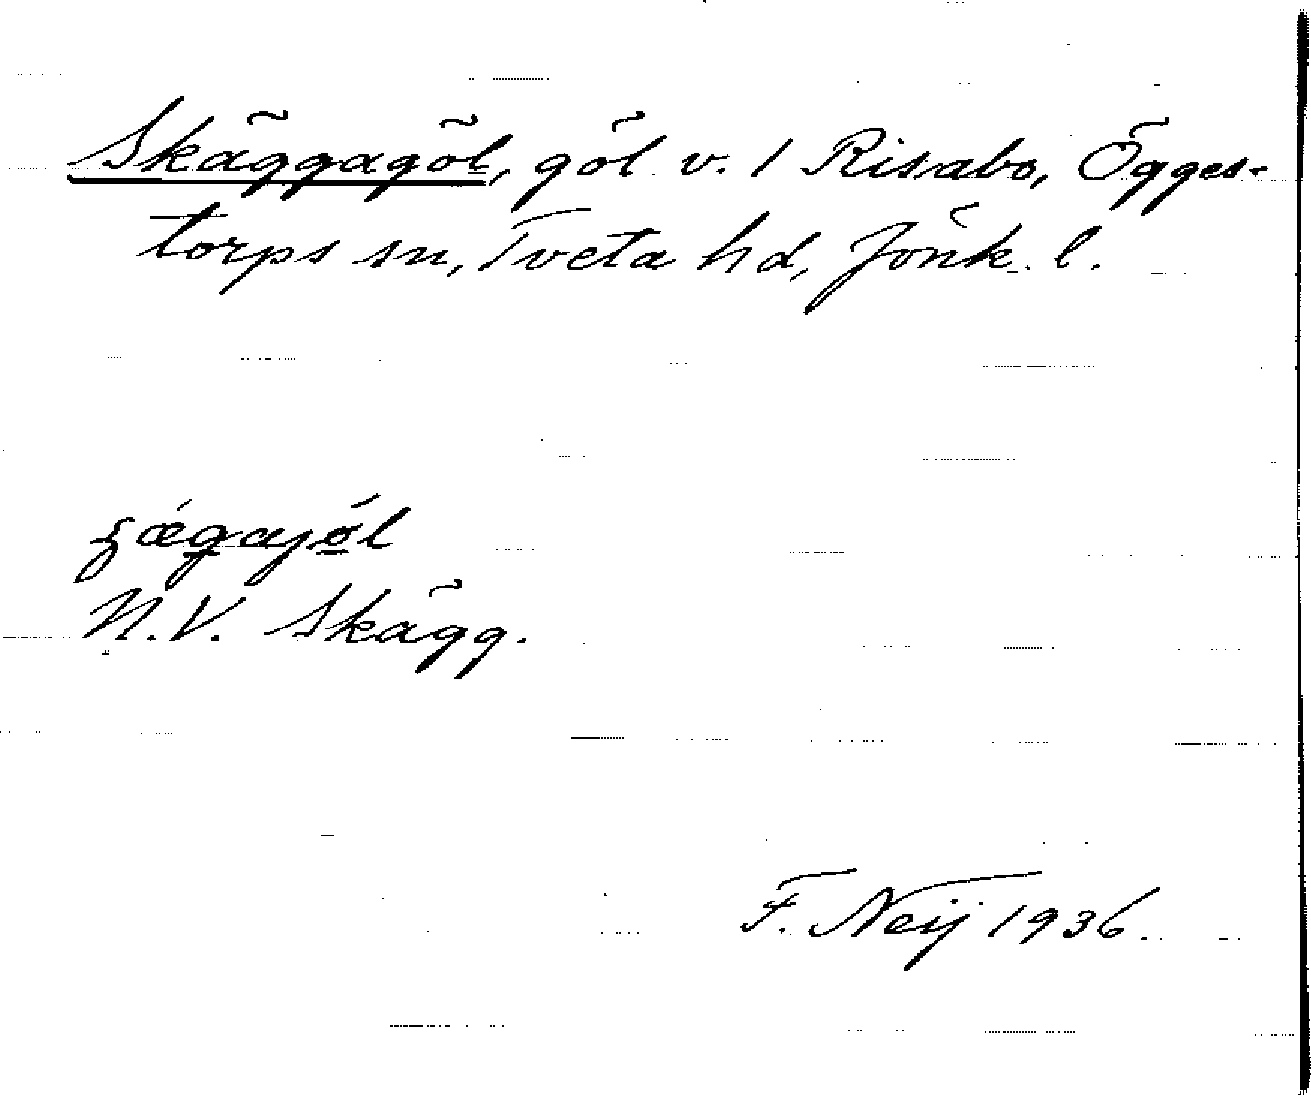 Skäggagöl, göl v. 1 Risabo, Ögges-
torps sn, Tveta hd, Jönk. l.
N.V. Skägg.
F. Neij 1936.